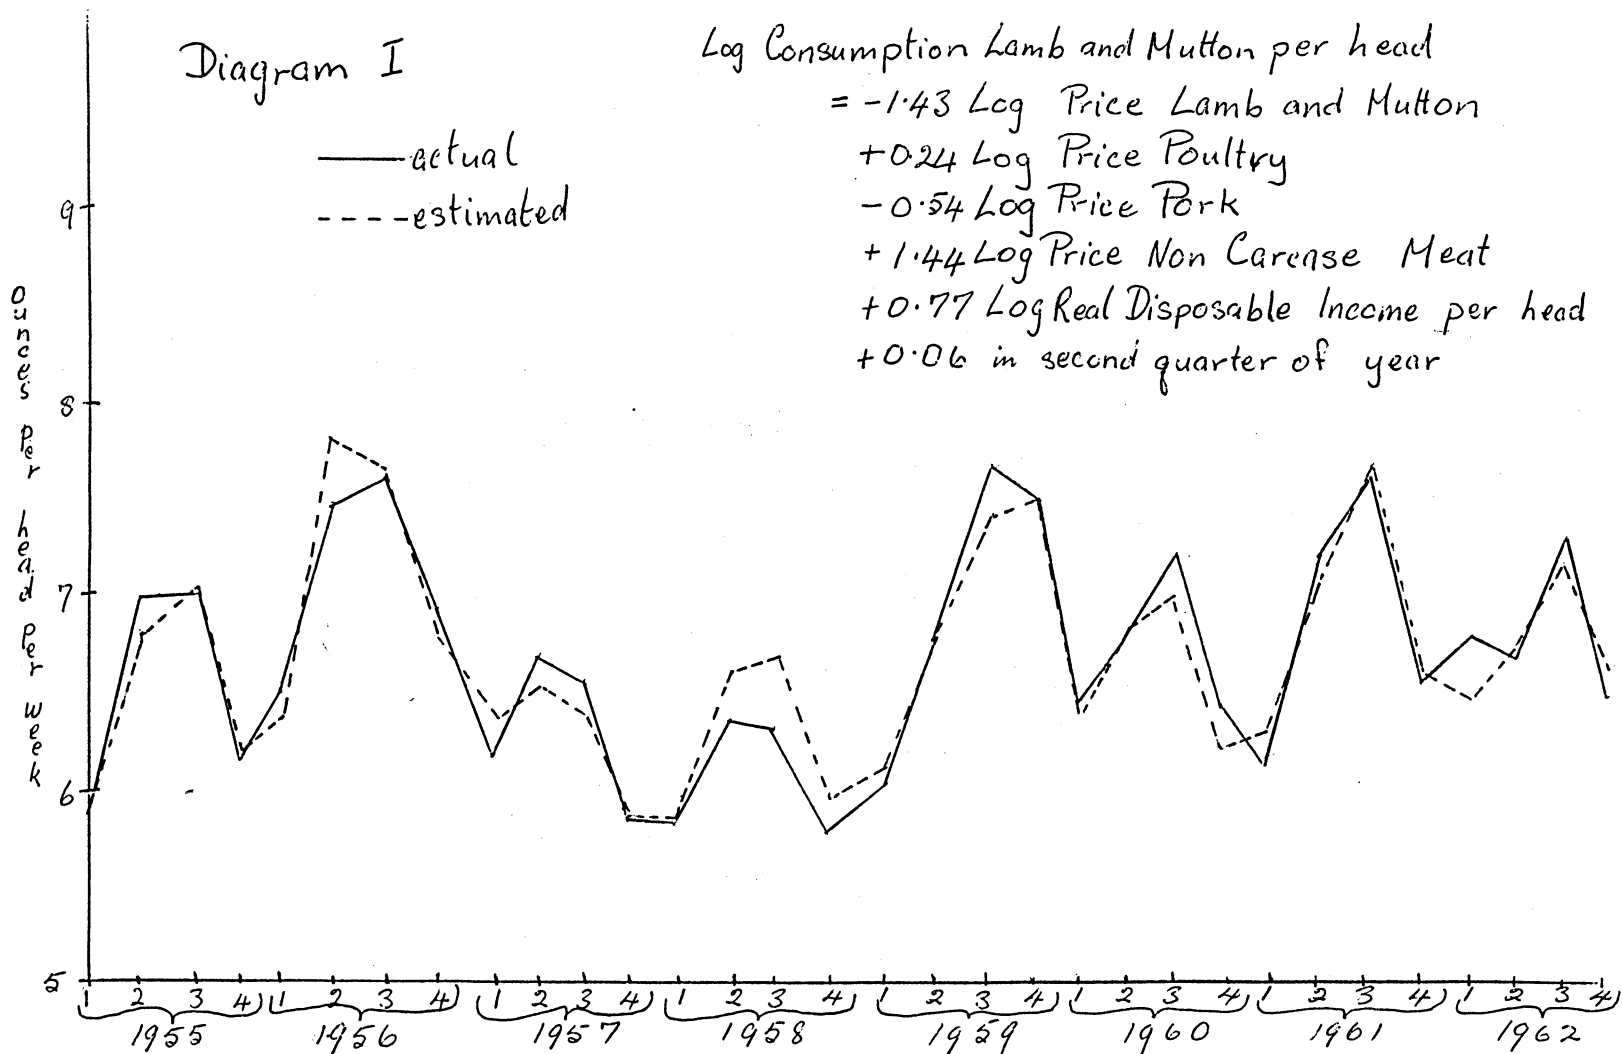 Diagram I
actual
estimated
Log Consumption Lamb and Mutton per head
= -1.43 Log Price Lamb and Mutton
+0.24 Log Price Poultry
-0.54 Log Price Pork
+1.44 Log Price Non Carcase Meat
+0.77 Log Real Disposable Income per head
+0.06 in second quarter of year
Ounces per head per week
9
8
7
6
5
1 2 3 4 1 2 3 4 1 2 3 4 1 2 3 4 1 2 3 4 1 2 3 4 1 2 3 4 1 2 3 4
1955 1956 1957 1958 1959 1960 1961 1962